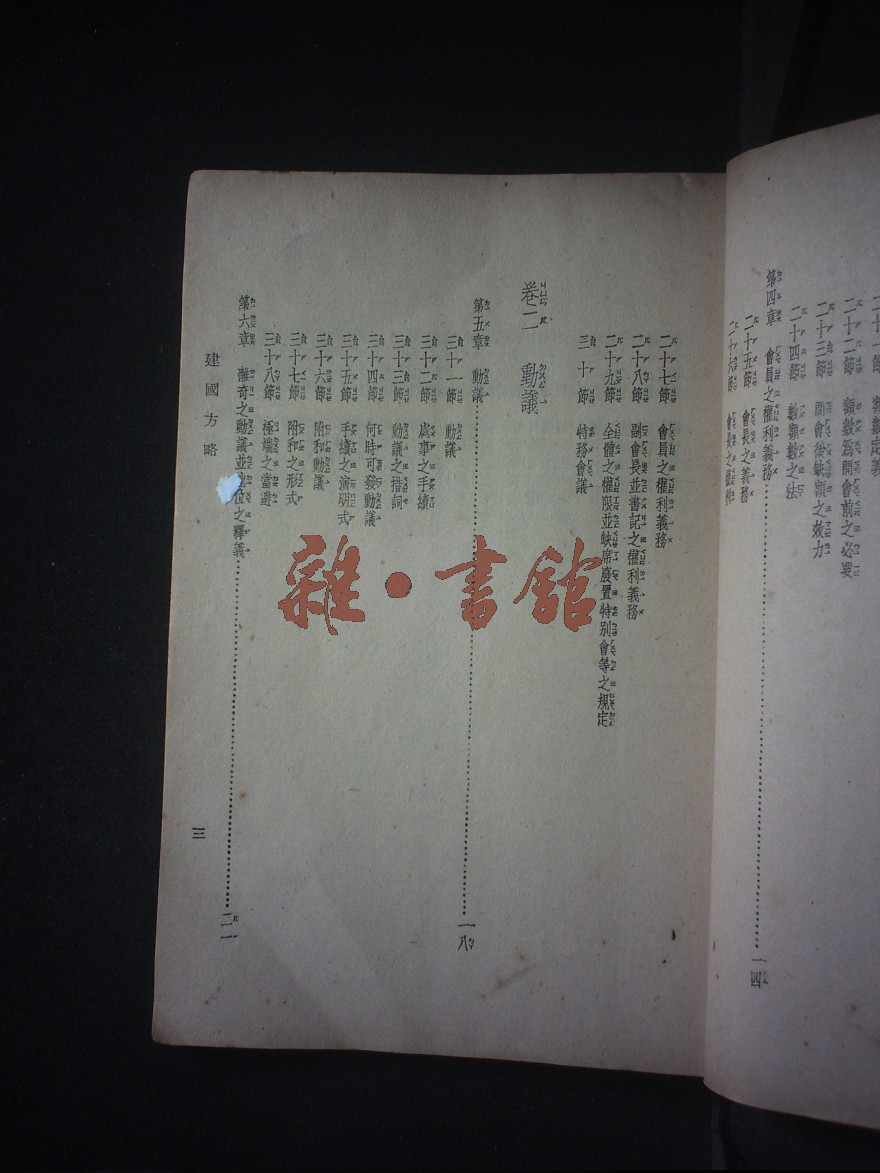 二十一節 額數定義
二十二節 額數為開會前之必要
二十三節 開會後缺額之效力
二十四節 數額數之法
第四章 會員之權利義務 一四
二十五節 會長之義務
二十六節 會長之權利
二十七節 會員之權利義務
二十八節 副會長並書記之權利義務
二十九節 全體之權限並缺席廢置特别會等之規定
三十節 特務會議
卷二 動議
第五章 動議 一八
三十一節 動議
三十二節 處事之手續
三十三節 動議之措詞
三十四節 何時可發動議
三十五節 手續之演明式
三十六節 附和動議
三十七節 附和之形式
三十八節 極端之當避
第六章 離奇之動議並地位之釋義 二一
建國方略
三
雜·書館